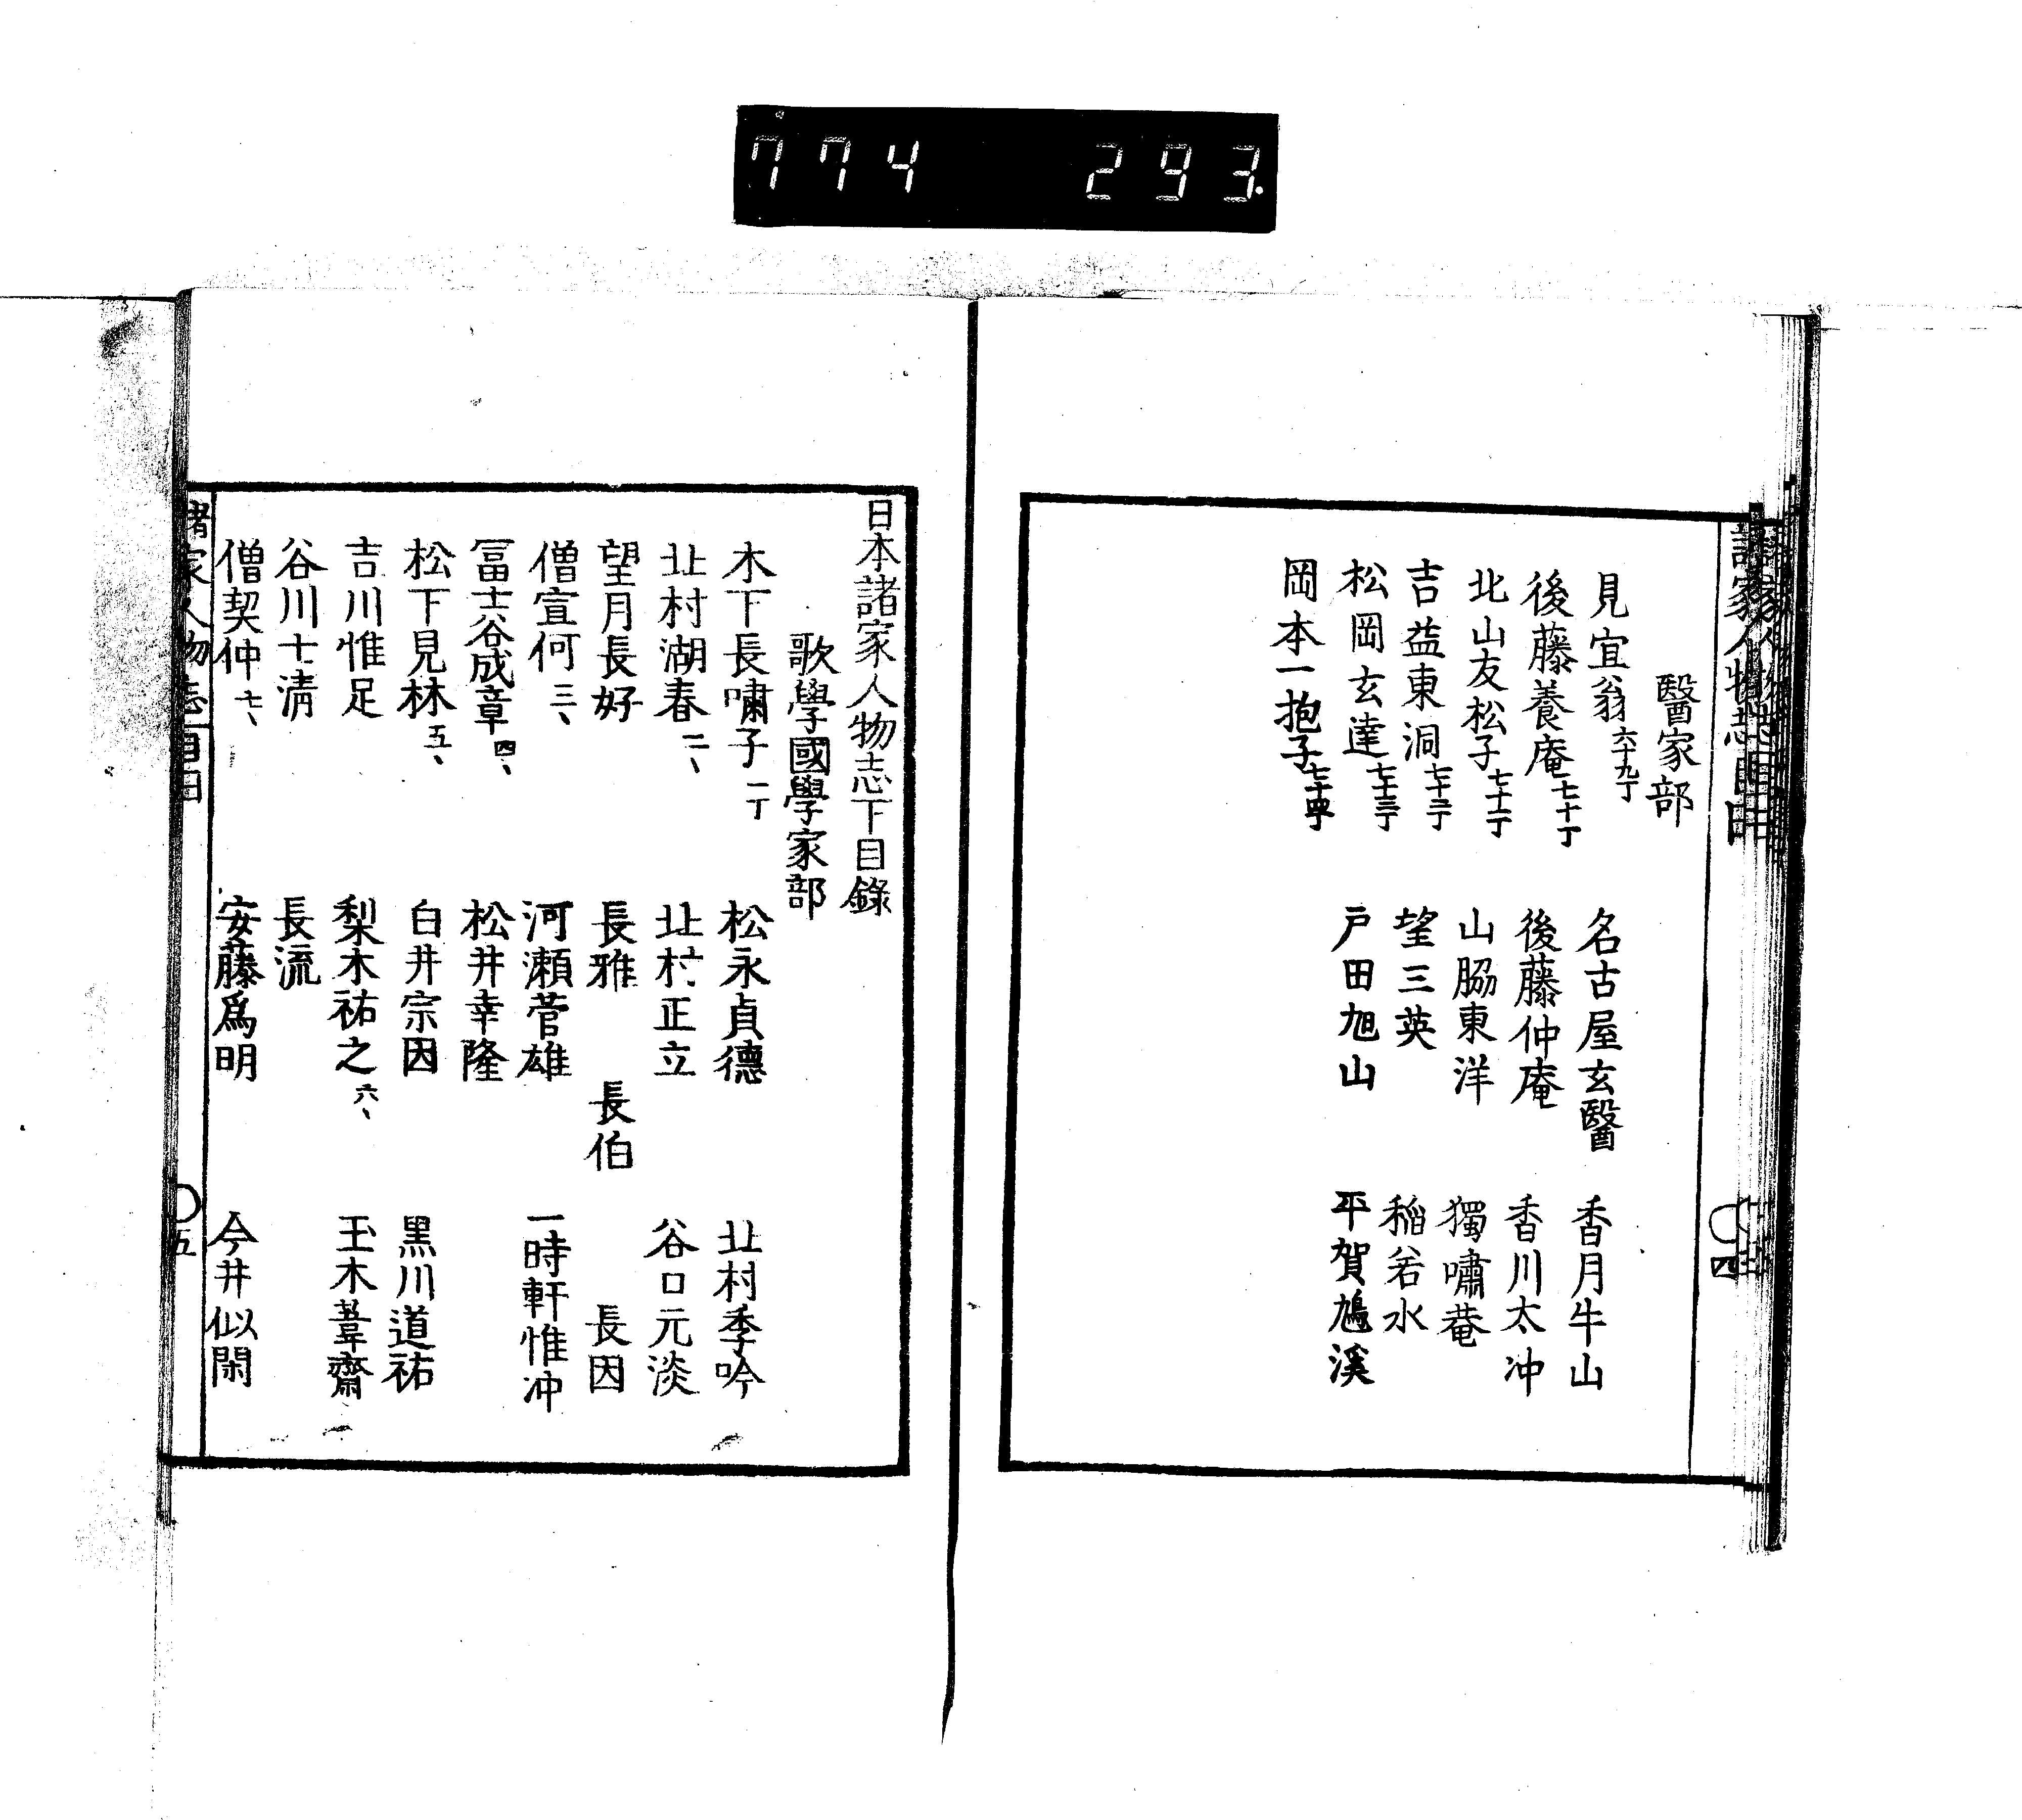 774 293.
諸家人物志目録
四
醫家部
見宜翁 六十九丁 名古屋玄醫 香月牛山
後藤養庵 七十丁 後藤仲庵 香川太冲
北山友松子 七十一丁 山脇東洋 獨嘯菴
吉益東洞 七十二丁 望三英 稲若水
松岡玄達 七十三丁 戸田旭山 平賀鳩溪
岡本一抱子 七十四丁
日本諸家人物志下目錄
歌學國學家部
木下長嘯子 一丁 松永貞德 北村季吟
北村湖春 二、 北村正立 谷口元淡
望月長好 長雅 長伯 長因
僧宜何 三、 河瀬菅雄 一時軒惟冲
冨士谷成章 四、 松井幸隆
松下見林 五、 白井宗因 黒川道祐
吉川惟足 梨木祐之 六、 玉木葦齋
谷川士清 長流
僧契仲 七、 安藤爲明 今井似閑
諸家人物志
五